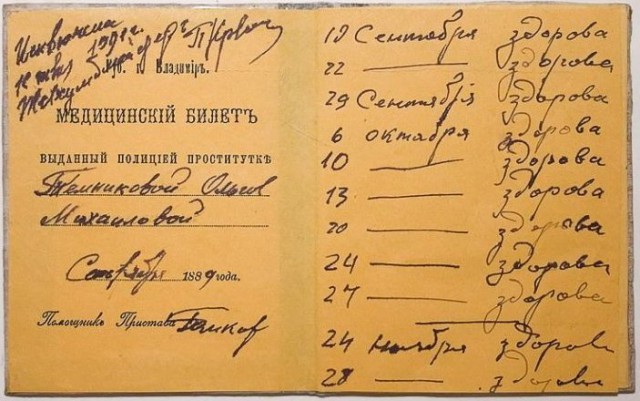 1891 г.
Губ. г. Владимiръ.
МЕДИЦИНСКIЙ БИЛЕТЪ
ВЫДАННЫЙ ПОЛИЦIЕЙ ПРОСТИТУТКѢ
Темниковой Ольгѣ
Михаиловой
Сентября 1889 года.
Помощникъ Пристава
19 Сентября здорова
22 — здорова
29 Сентября здорова
6 октября здорова
10 — здорова
13 — здорова
20 — здорова
24 — здорова
27 — здорова
24 ноября здорова
28 — здорова